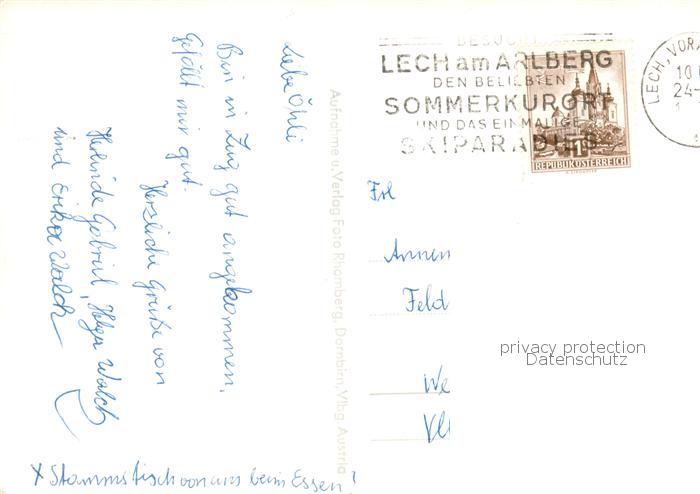 Liebe Öhli
Bin in Zug gut angekommen,
Gefällt mir gut.
Herzliche Grüße von
Herlinde Gabriel, Helga Walch
und Erika Walch
X Stammstisch von uns beim Essen!
Aufnahme u. Verlag Foto Rhomberg, Dornbirn, Vlbg. Austria
BESUCH
LECH am ARLBERG
DEN BELIEBTEN
SOMMERKURORT
UND DAS EINMALIGE
SKIPARADIES
REPUBLIK ÖSTERREICH
LECH, VORA
10
24-
Frl
Annen
Feld
We
privacy protection
Datenschutz